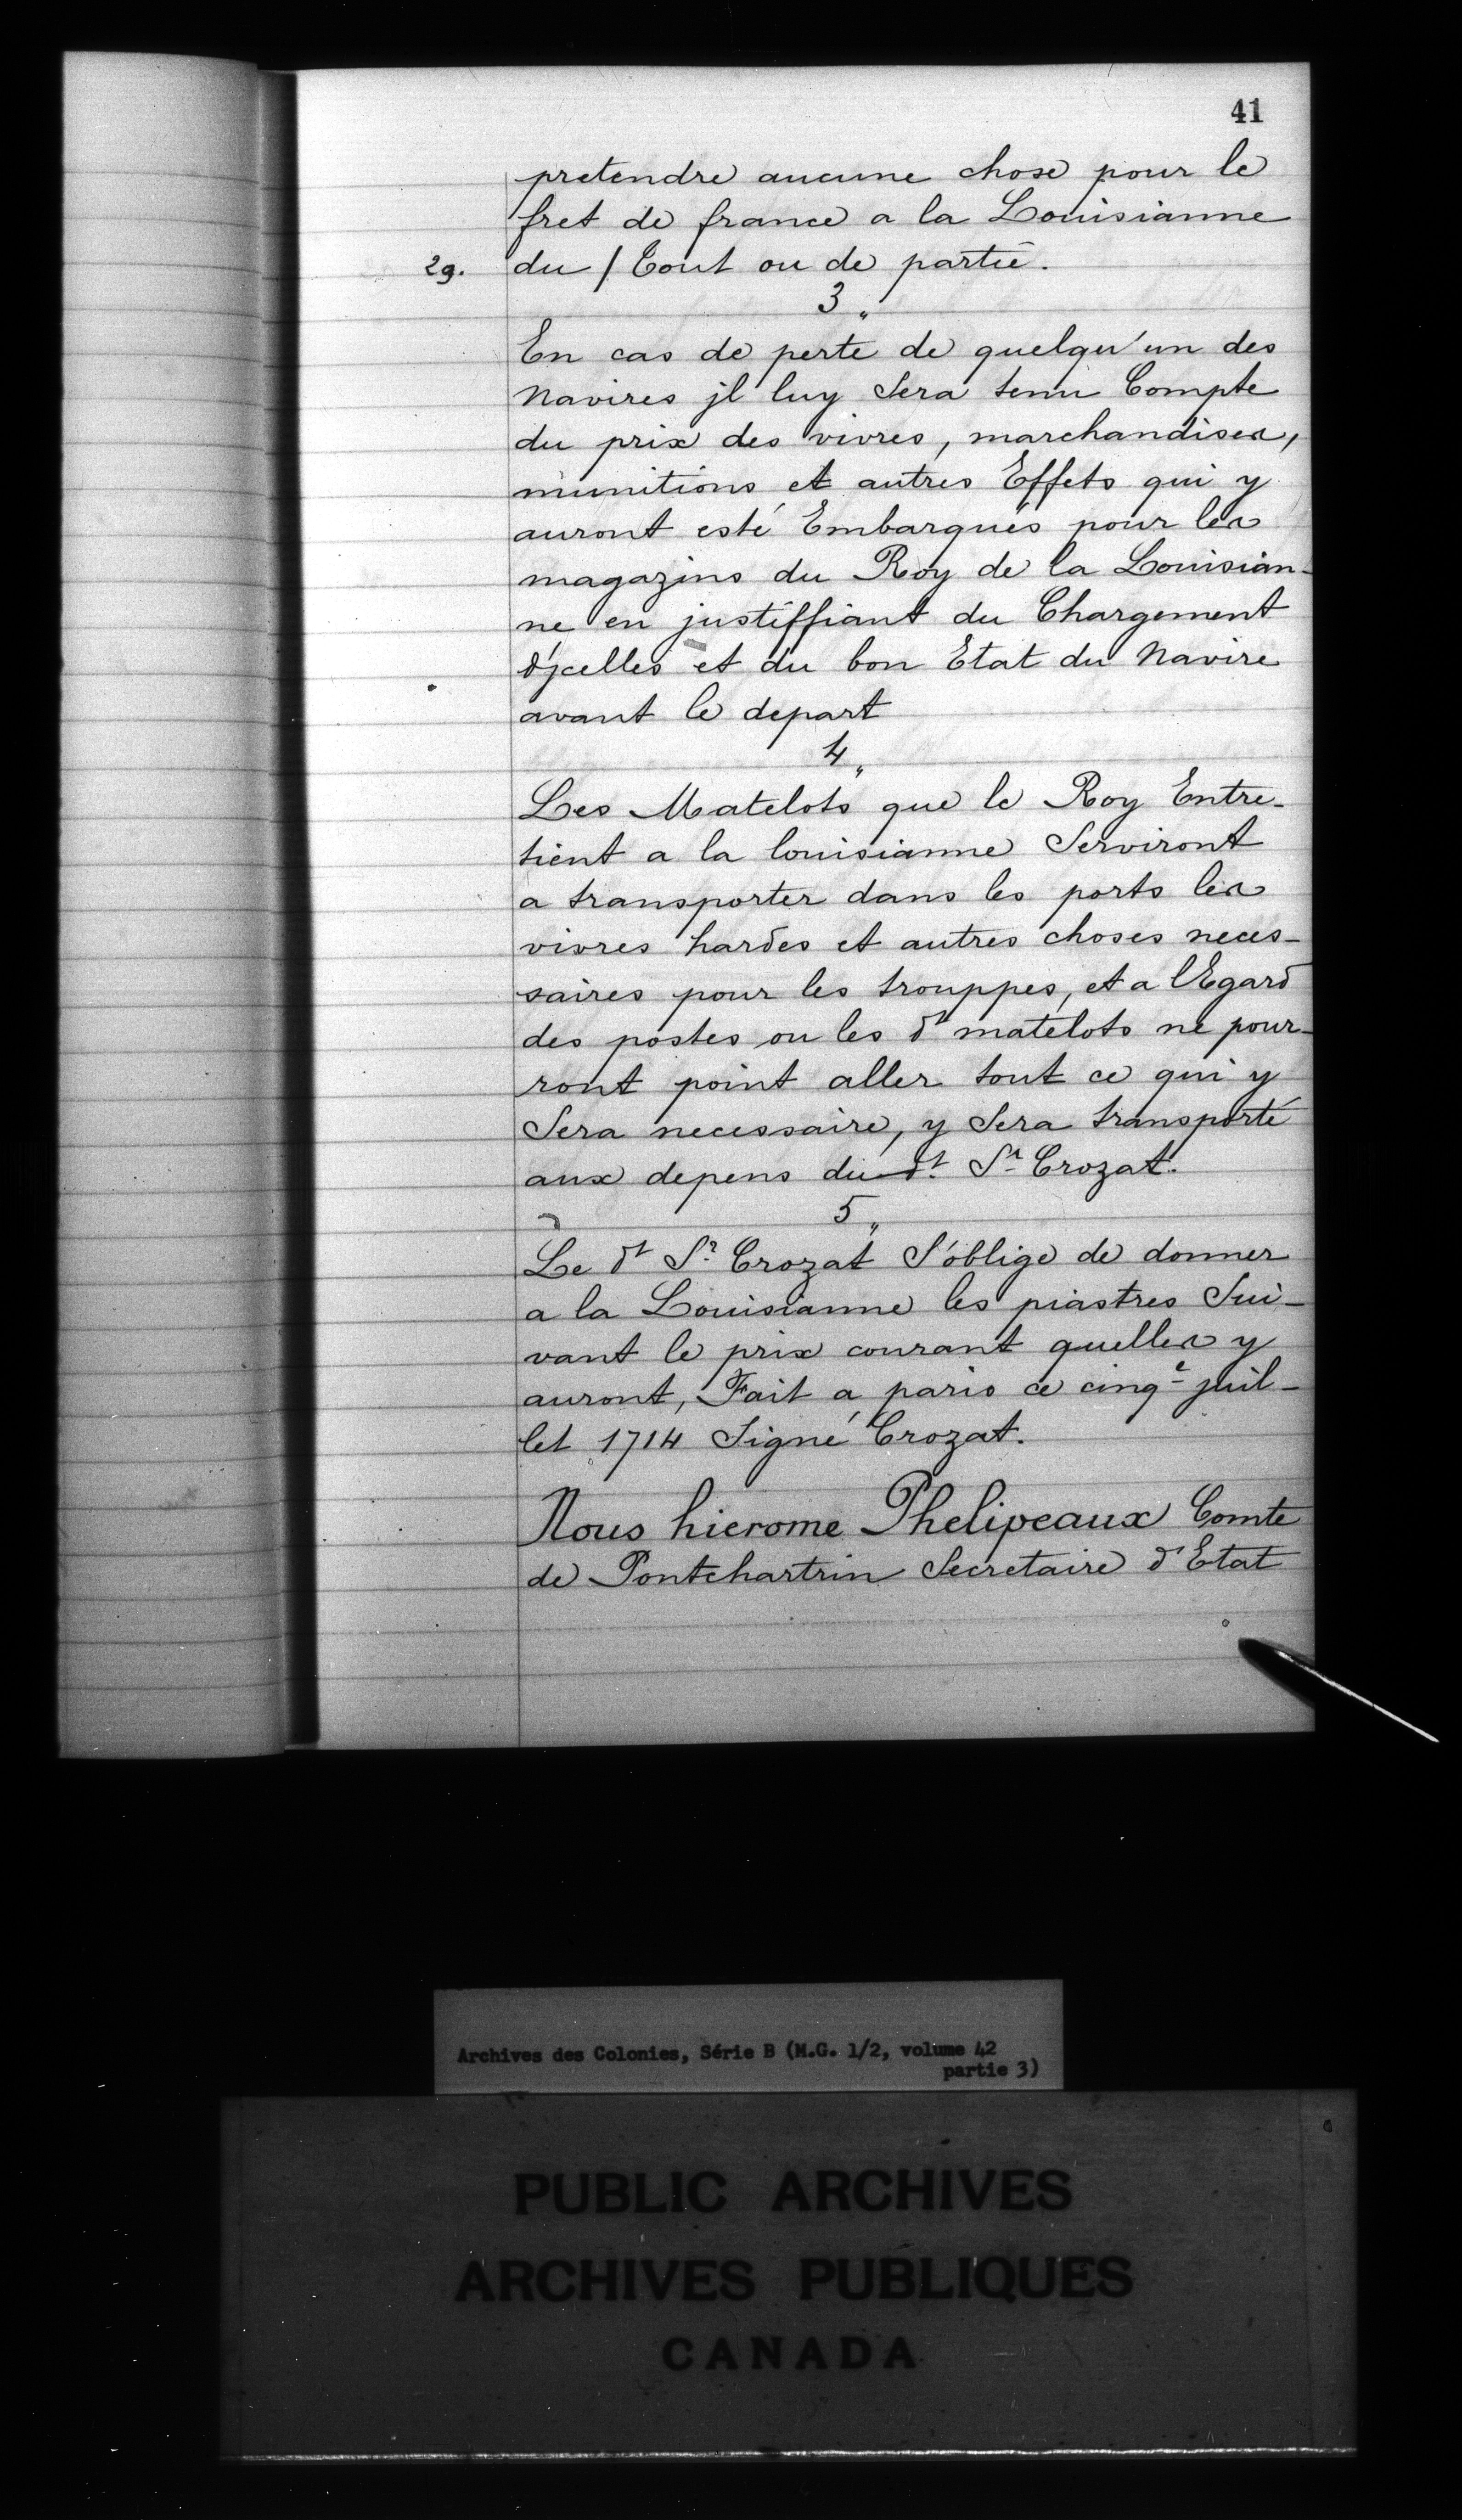 41
pretendre aucune chose pour le
fret de france a la Louisianne
29. du / Tout ou de partie.
3"
En cas de perte de quelqu'un des
Navires jl luy Sera tenu Compte
du prix des vivres, marchandises,
munitions et autres Effets qui y
auront esté Embarqués pour les
magazins du Roy de la Louisian-
ne en justiffiant du Chargement
d'jcelles et du bon Etat du Navire
avant le depart
4"
Les Matelots que le Roy Entre-
tient a la louisianne Serviront
a transporter dans les ports les
vivres hardes et autres choses neces-
saires pour les trouppes, et a l'Egard
des postes ou les dt matelots ne pour-
ront point aller tout ce qui y
Sera necessaire, y Sera transporté
aux depens du dt. Sr Crozat.
5"
Le dt Sr. Crozat S'oblige de donner
a la Louisianne les piastres Sui-
vant le prix courant quelles y
auront, Fait a paris ce cinqe juil-
let 1714 Signé Crozat.
Nous hierome Phelipeaux Comte
de Pontchartrin Secretaire d'Etat
Archives des Colonies, Série B (M.G. 1/2, volume 42
partie 3)
PUBLIC ARCHIVES
ARCHIVES PUBLIQUES
CANADA